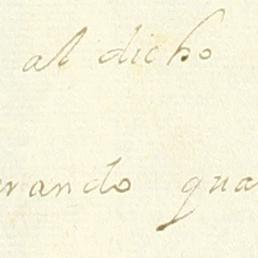 al dicho
rando qua